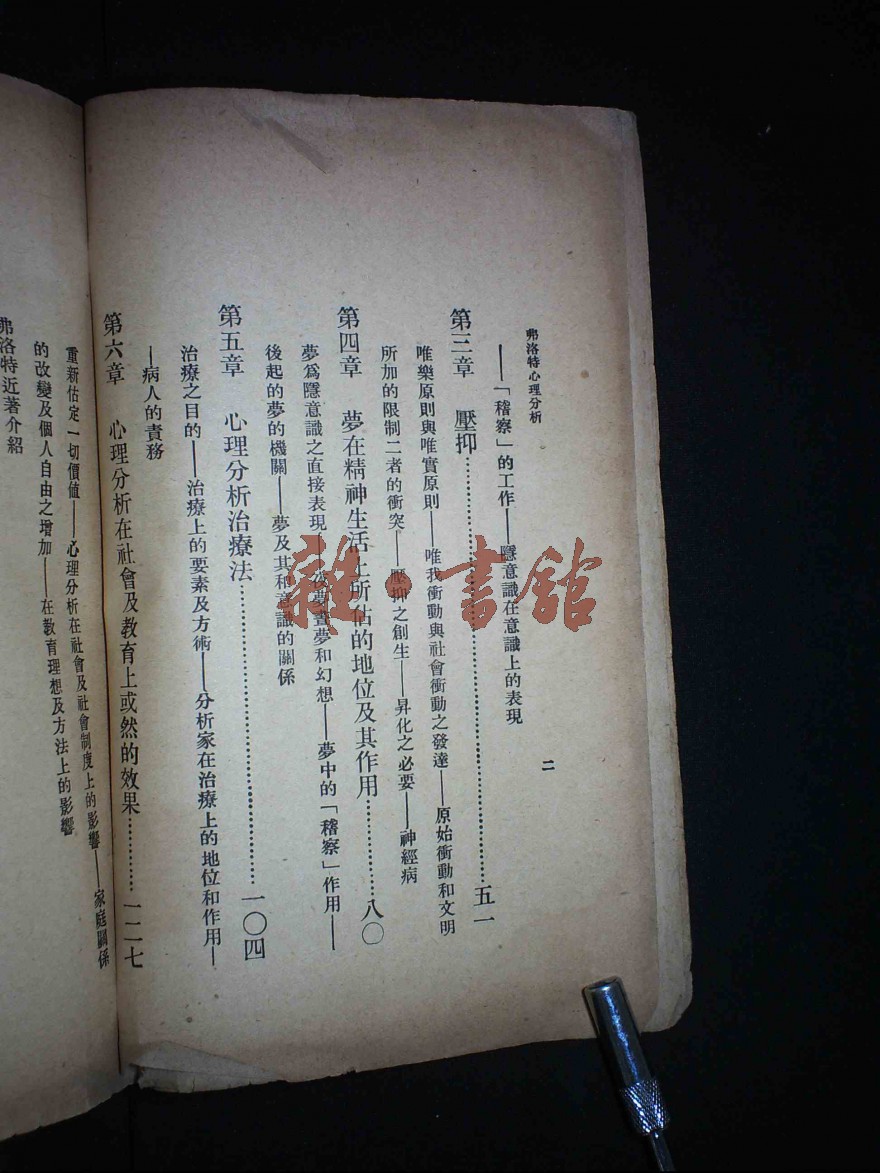 弗洛特心理分析
二
——「稽察」的工作——隱意識在意識上的表現
第三章　壓抑……五一
唯樂原則與唯實原則——唯我衝動與社會衝動之發達——原始衝動和文明
所加的限制二者的衝突——壓抑之創生——昇化之必要——神經病
第四章　夢在精神生活上所佔的地位及其作用……八〇
夢爲隱意識之直接表現——夜夢晝夢和幻想——夢中的「稽察」作用——
後起的夢的機關——夢及其和意識的關係
第五章　心理分析治療法……一〇四
治療之目的——治療上的要素及方術——分析家在治療上的地位和作用—
—病人的責務
第六章　心理分析在社會及教育上或然的效果……一二七
重新估定一切價值——心理分析在社會及社會制度上的影響——家庭關係
的改變及個人自由之增加——在教育理想及方法上的影響
弗洛特近著介紹
雜·書館